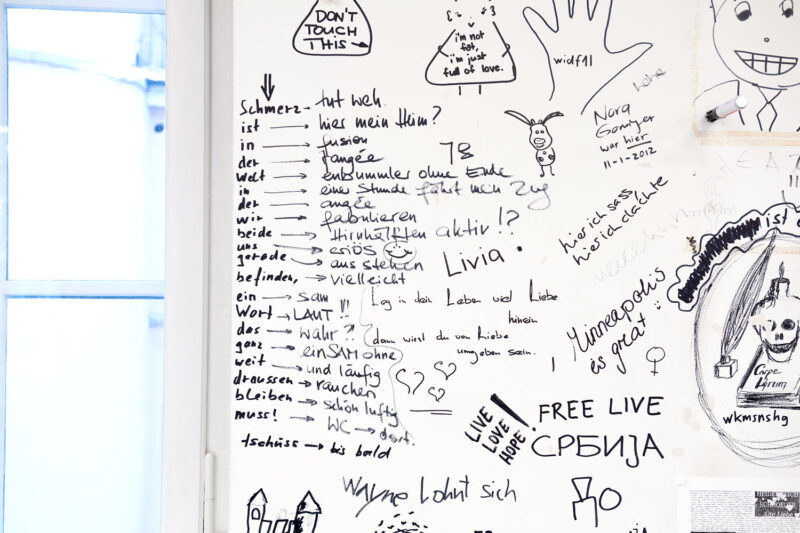 DON'T
TOUCH
THIS
i'm not
fat,
i'm just
full of love.
widf11
hehe
Nora
war hier
11-1-2012
Schmerz - tut weh.
ist hier mein Heim?
in fusion
der
welt ohne Ende
in einer Stunde fährt mein Zug
der angée
wir fabulieren
beide Hirnhälften aktiv!?
uns eriös
gerade aus stehen
befinden, vielleicht
78
Livia.
hier ich sass
hier ich dachte
ein sam
Wort LAUT!!
das wahr?!
ganz einSAM ohne
weit und läufig
draussen räuchen
bleiben schön luftig
muss! WC dort.
tschüss bis bald
Log in dein Leben viel Liebe
hinein
dann wirst du von Liebe
umgeben sein.
Minneapolis
is great
ist
Carpe
wkmsnshg
LIVE
LOVE
HOPE!
FREE LIVE
СРБИЈА
Wayne Lohnt sich
До